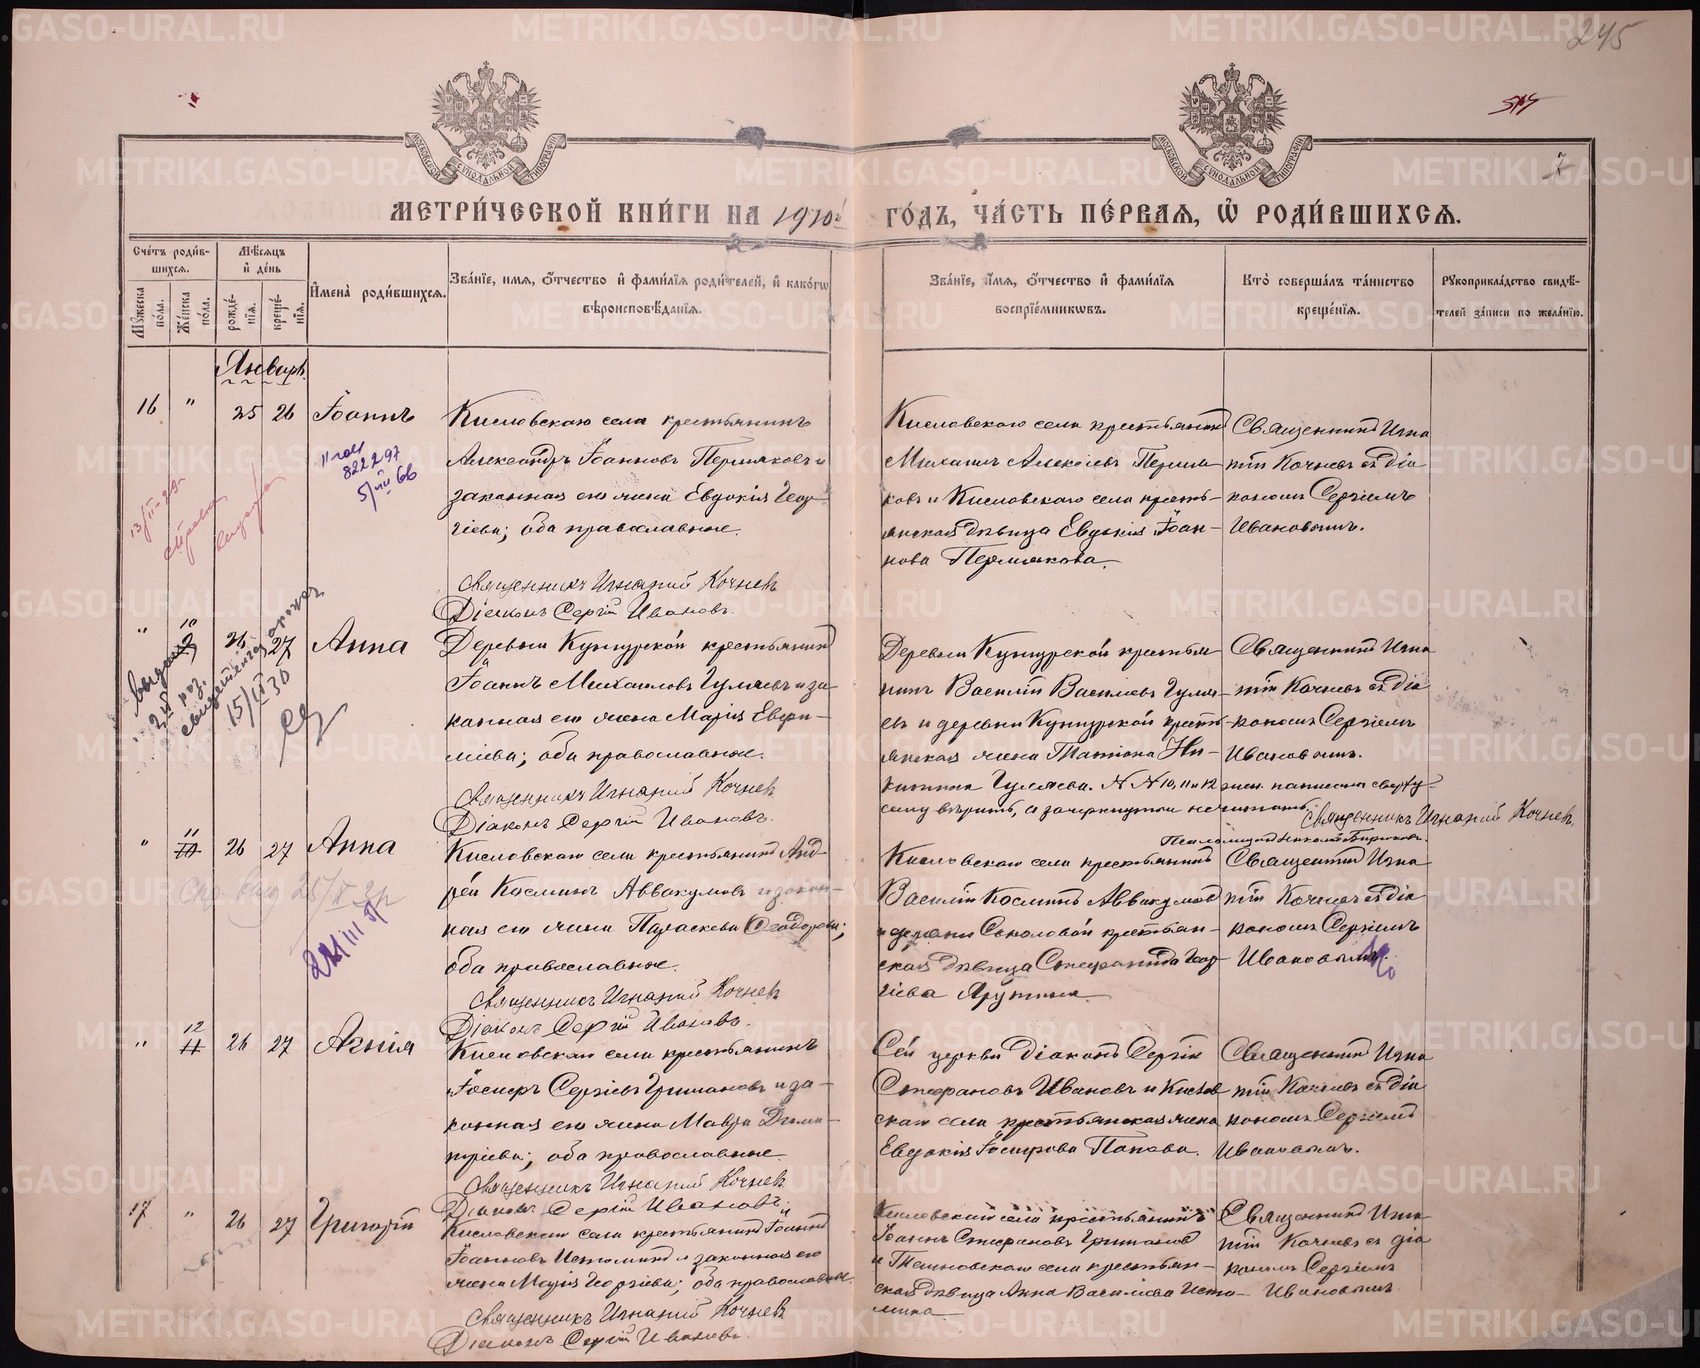 245
МЕТРИЧЕСКОЙ КНИГИ НА 1910й ГОДЪ, ЧАСТЬ ПЕРВАЯ, Ѡ РОДИВШИХСЯ.
7
Счетъ родившихся.
Мужеска пола.
Женска пола.
Мѣсяцъ и день
рожденія.
крещенія.
Имена родившихся.
Званіе, имя, отчество и фамилія родителей, и какогѡ
вѣроисповѣданія.
Званіе, имя, отчество и фамилія
воспріемникѡвъ.
Кто совершалъ таинство
крещенія.
Рукоприкладство свидѣтелей записи по желанію.
Январь.
16 " 25 26 Іоаннъ
Кисловскаго села крестьянинъ
Александръ Іоанновъ Пермяковъ и
законная его жена Евдокія Геор-
гіева; оба православные.
Священникъ Игнатій Кочневъ
Діаконъ Сергій Ивановъ.
Кисловскаго села крестьянинъ
Михаилъ Алексіевъ Пермя-
ковъ и Кисловскаго села кресть-
янская дѣвица Евдокія Іоан-
нова Пермякова.
Священникъ Игна
тій Кочневъ съ діа
кономъ Сергіемъ
Ивановымъ.
822297
" 10 26 27 Анна
Деревни Кунгурской крестьянинъ
Іоаннъ Михаиловъ Гуляевъ и за-
конная его жена Марія Евфи-
міева; оба православные.
Священникъ Игнатій Кочневъ
Діаконъ Сергій Ивановъ.
Деревни Кунгурской крестья
нинъ Василій Василіевъ Гуля-
евъ и деревни Кунгурской кресть-
янская жена Татіана Ни-
Гуляева. №№ 10, 11 и 12 жен. написаны сверху
сему вѣрить, а зачеркнутыя не читать. Священникъ Игнатій Кочневъ.
Псаломщикъ Николай
Священникъ Игна
тій Кочневъ съ діа
кономъ Сергіемъ
Ивановымъ.
15/IX 30
" 11 26 27 Анна
Кисловскаго села крестьянинъ Анд-
рей Косминъ Аввакумовъ и закон-
ная его жена Параскева Ѳеодорова;
оба православные.
Священникъ Игнатій Кочневъ
Діаконъ Сергій Ивановъ.
Кисловскаго села крестьянинъ
Василій Косминъ Аввакумовъ
и деревни Соколовой крестьян-
ская дѣвица Стефанида Геор-
гіева Ярутина.
Священникъ Игна
тій Кочневъ съ діа
кономъ Сергіемъ
Ивановымъ.
" 12 26 27 Агнія
Кисловскаго села крестьянинъ
Іосифъ Сергіевъ Гримановъ и за-
конная его жена Мавра Дими-
тріева; оба православные.
Священникъ Игнатій Кочневъ
Діаконъ Сергій Ивановъ.
Сей церкви діаконъ Сергій
Стефановъ Ивановъ и Кислов
скаго села крестьянская жена
Евдокія Іосифова Попова.
Священникъ Игна
тій Кочневъ съ діа
кономъ Сергіемъ
Ивановымъ.
17 " 26 27 Григорій
Кисловскаго села крестьянинъ Іоаннъ
Іоанновъ Истоминъ и законная его
жена Марія Георгіева; оба православные.
Священникъ Игнатій Кочневъ
Діаконъ Сергій Ивановъ.
Кисловскаго села крестьянинъ
Іоаннъ Стефановъ Гримановъ
и села крестьян-
ская дѣвица Анна Василіева Исто-
мина.
Священникъ Игна
тій Кочневъ съ діа
кономъ Сергіемъ
Ивановымъ
METRIKI.GASO-URAL.RU